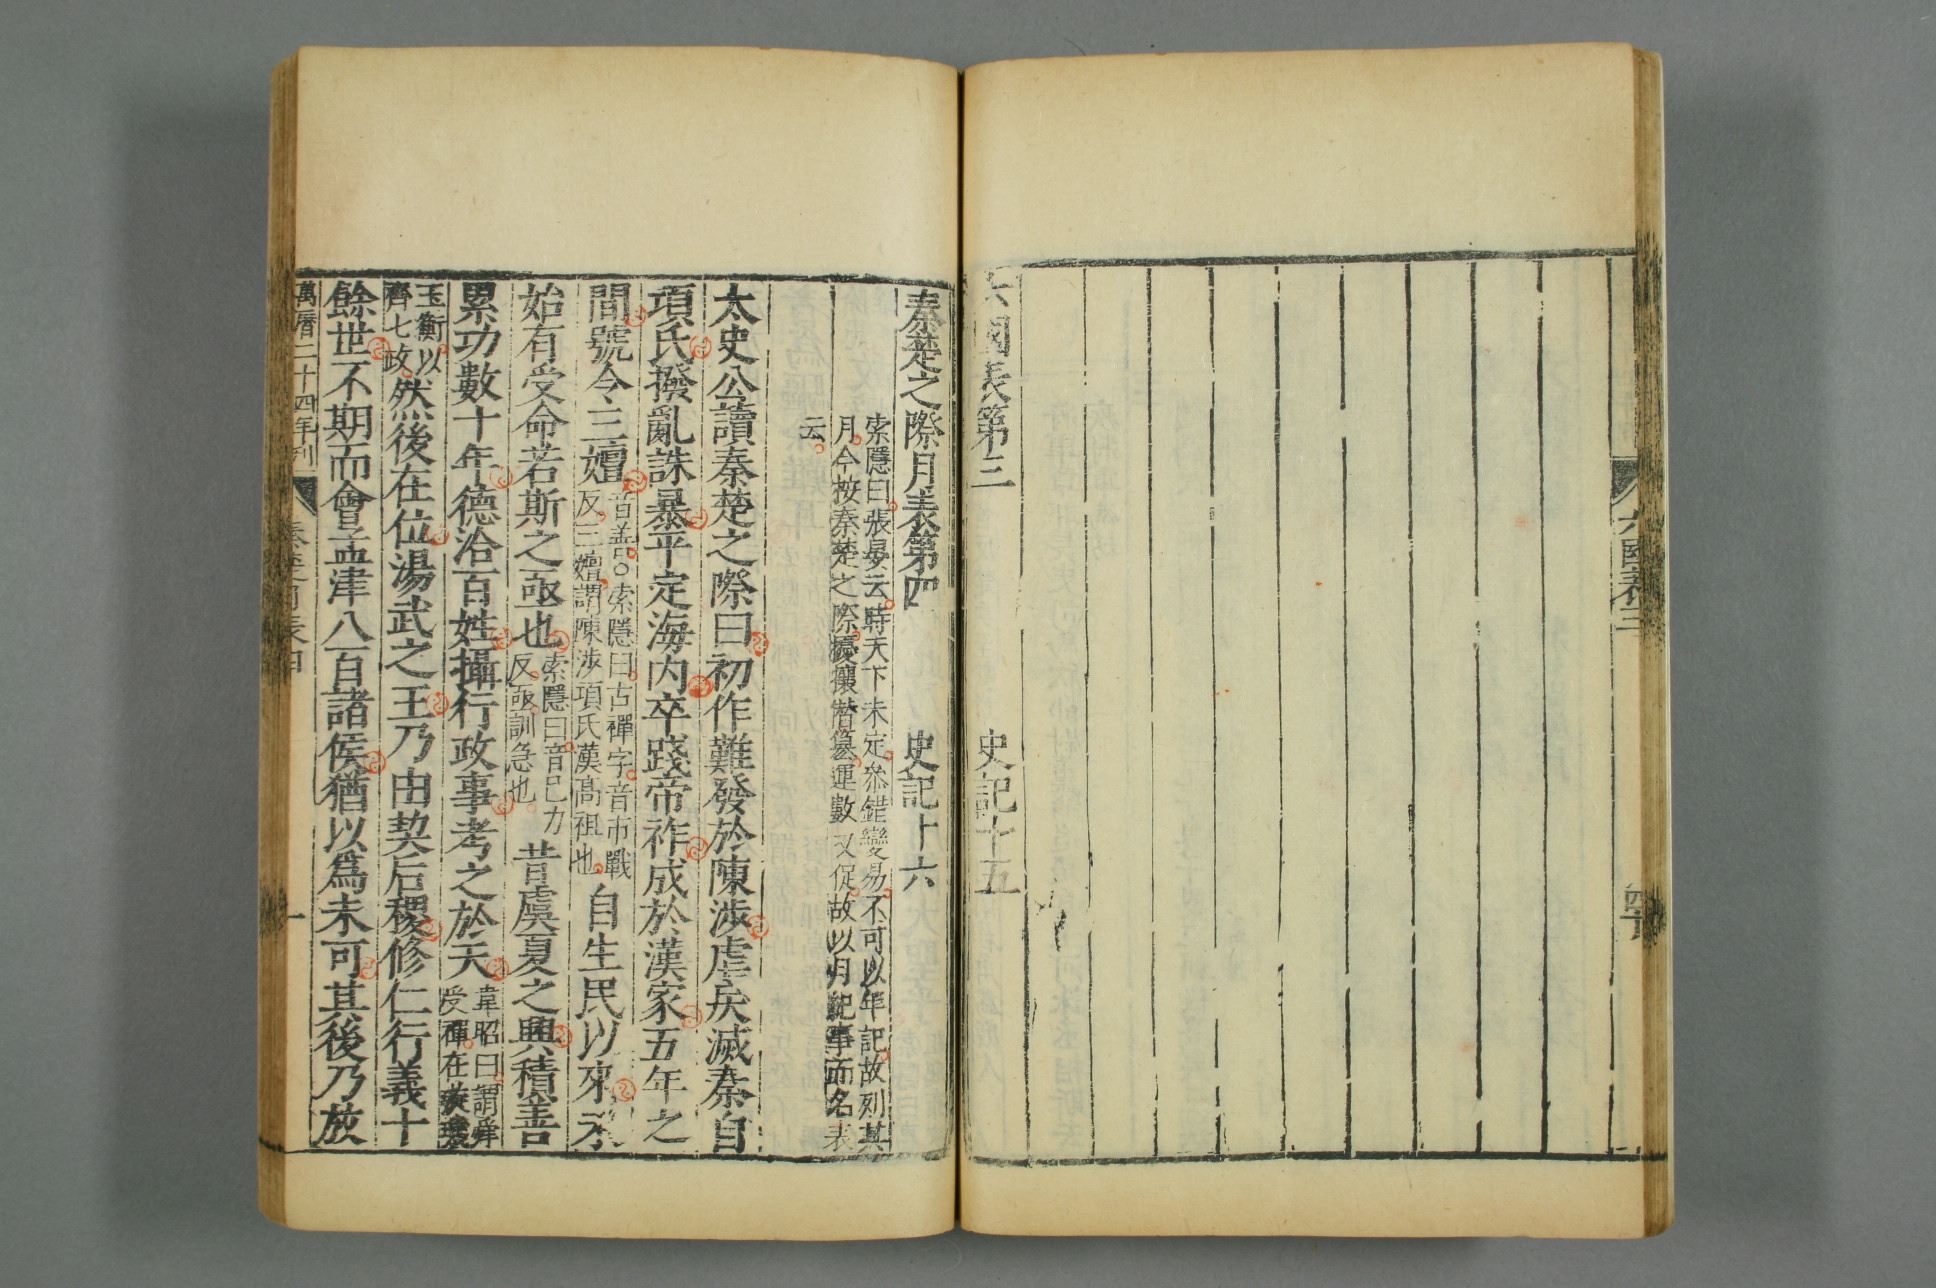 六國表三
六國表第三 史記十五
秦楚之際月表第四 史記十六
索隱曰張晏云時天下未定叅錯變易不可以年記故列其
月今按秦楚之際擾攘僣篡運數又促故以月紀事而名表
云
太史公讀秦楚之際曰初作難發於陳涉虐戾滅秦自
項氏撥亂誅暴平定海内卒踐帝祚成於漢家五年之
間號令三嬗音善○索隱曰古禪字音市戰反三嬗謂陳涉項氏漢高祖也自生民以來未
始有受命若斯之亟也索隱曰音己力反亟訓急也昔虞夏之興積善
累功數十年德洽百姓攝行政事考之於天韋昭曰謂舜受禪在璇璣
玉衡以齊七政然後在位湯武之王乃由契后稷修仁行義十
餘世不期而會孟津八百諸侯猶以爲未可其後乃放
萬曆二十四年刊 秦楚月表四 一